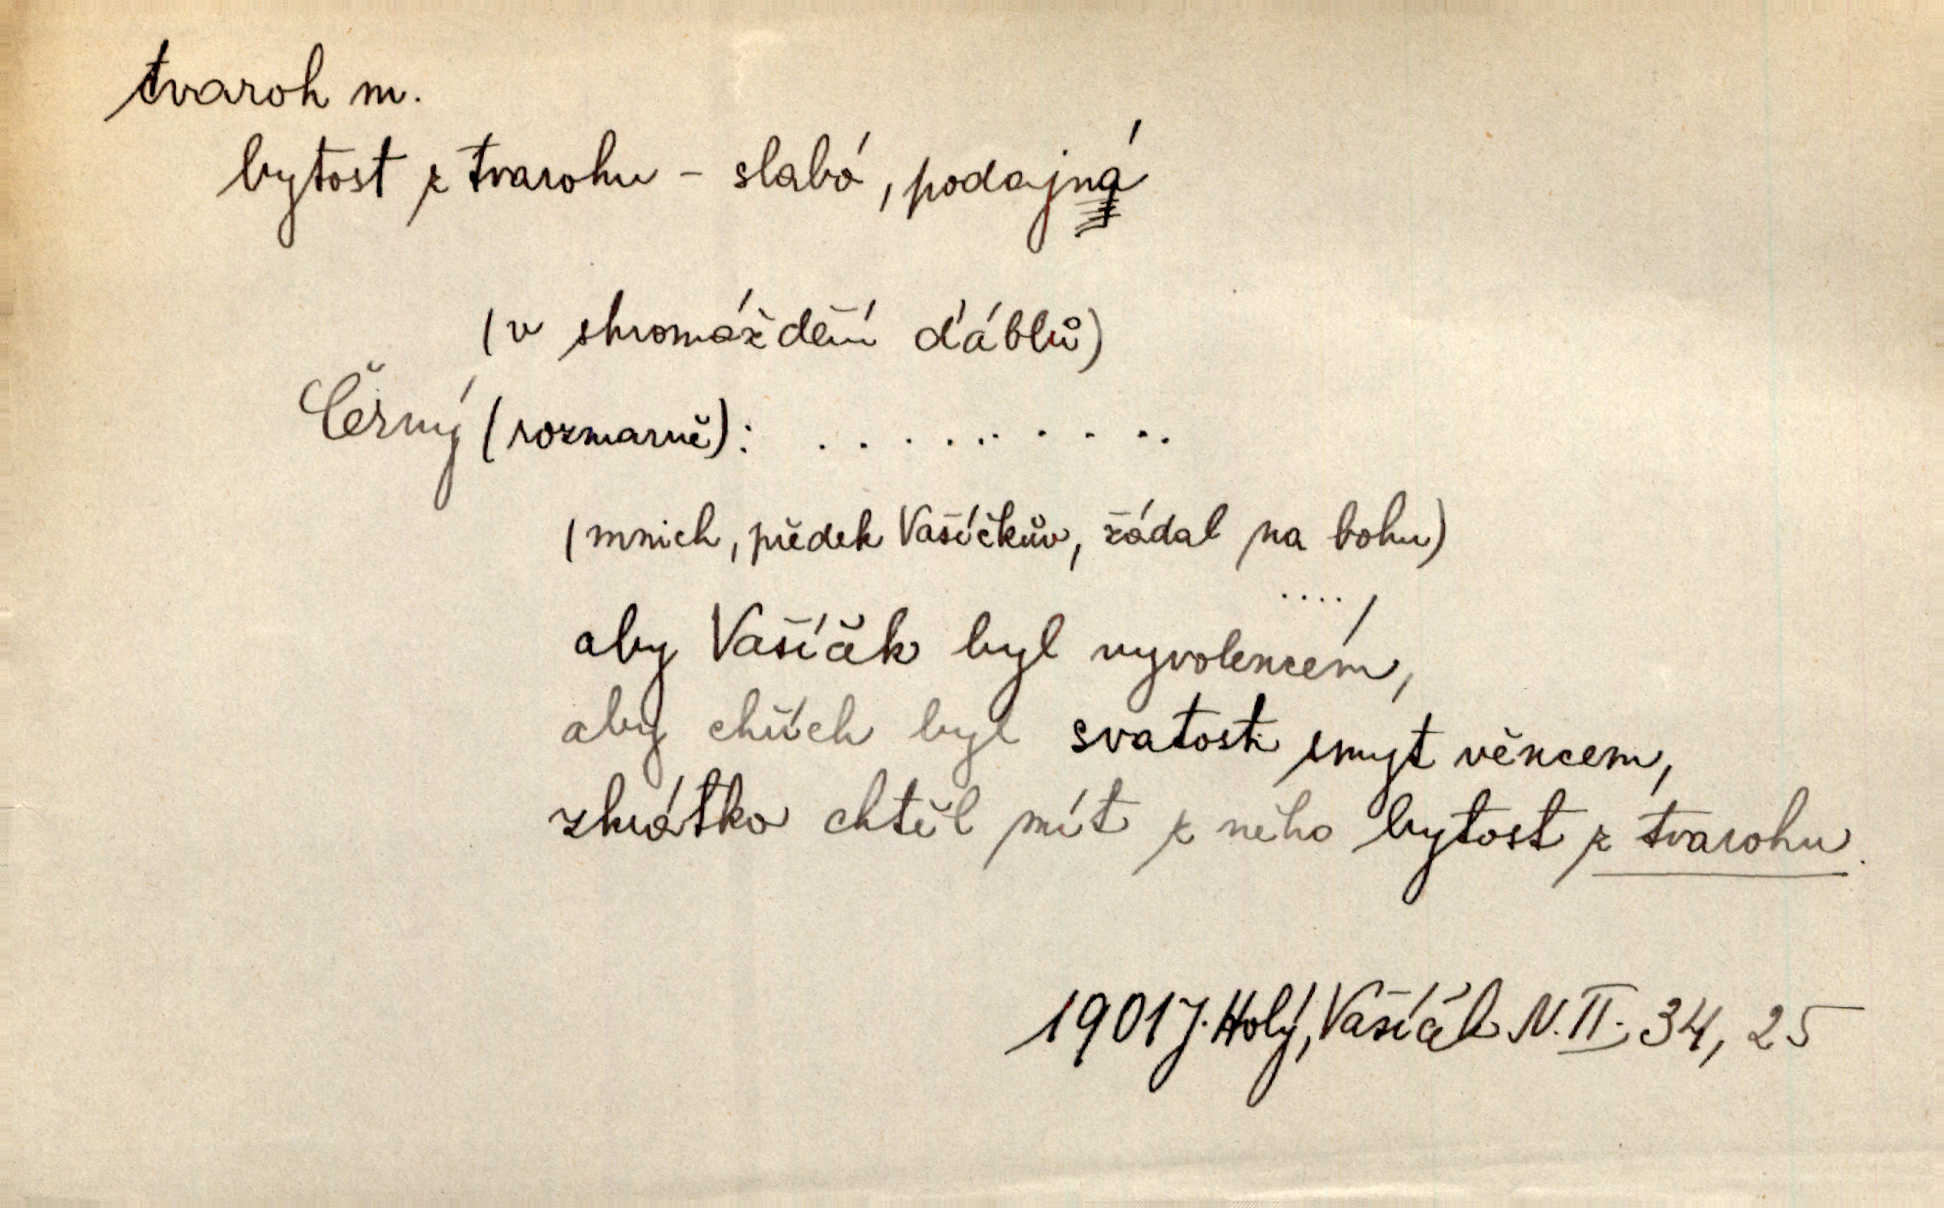 tvaroh m.
bytost z tvarohu - slabá, podajná
(v shromáždění ďáblů)
Černý (rozmarně): . . . . . . . . . . .
(mnich, předek Vašíčkův, žádal na bohu)
....
aby Vašíček byl vyvolencem,
aby hřích byl svatosti smyt věncem,
zkrátka chtěl mít z něho bytost z tvarohu.
1901 J. Holý, Vašíček N. II. 34, 25